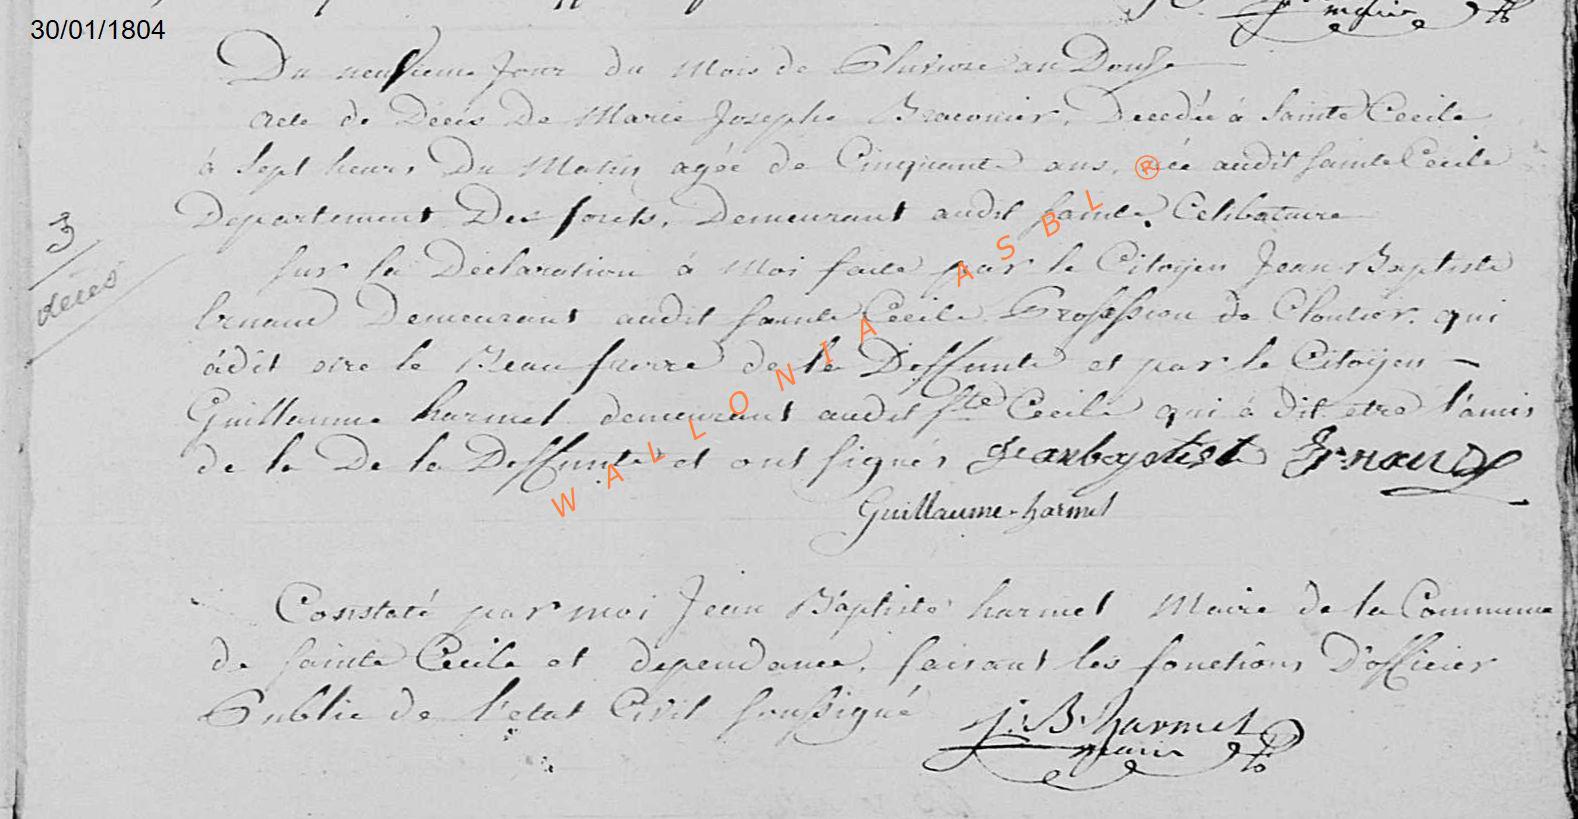 30/01/1804
maire
Du neuvieme Jour du Mois de Pluviose an Douse
acte de Décés De Marie Josephe Braconier, Decedéé à Sainte Cecile
à Sept heurs Du Matin agéé de Cinquante ans, néé audit Sainte Cecile
Departement Des forets, Demeurant audit Sainte. Celibataire
3
décés
Sur la Déclaration à Moi faite par le Citoÿen Jean Baptiste
Ernaud Demeurant audit Sainte Cecile Profession de Cloutier. qui
àdît etre le Beau frerre de la Deffunte et par le Citoÿen —
Guillaume harmel demeurant audit Ste Cecile qui à dit etre l'amis
de la De la Deffunte et ont Signés Jeanbaptiste Ernaud
Guillaume harmel
Constaté par moi Jean Baptiste harmel Maire de la Commune
de Sainte Cecile et dependance, faisant les fonctions D'officier
Public de l'etat Civil Soussigné J. B. harmel
maire
WALLONIA ASBL ®